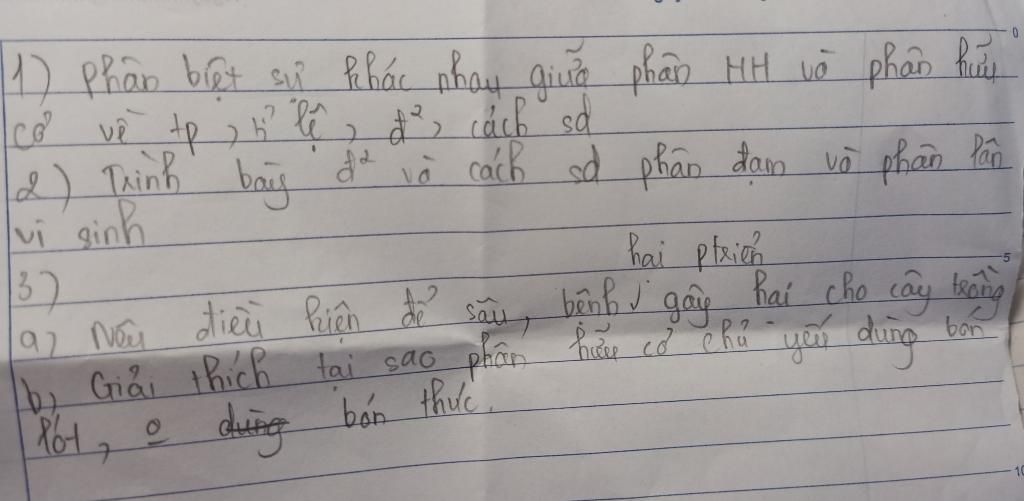 1) Phân biệt sự khác nhau giữa phân HH và phân hữu
cơ về tp, tỉ lệ, đ², cách sd
2) Trình bày đ² và cách sd phân đạm và phân lân
vi sinh
3)
hại ptriển
a) Nêu điều kiện để sâu, bệnh √ gây hại cho cây trồng
b) Giải thích tại sao phân hữu cơ chủ yếu dùng bón
lót, o dùng bón thúc.
0
5
10